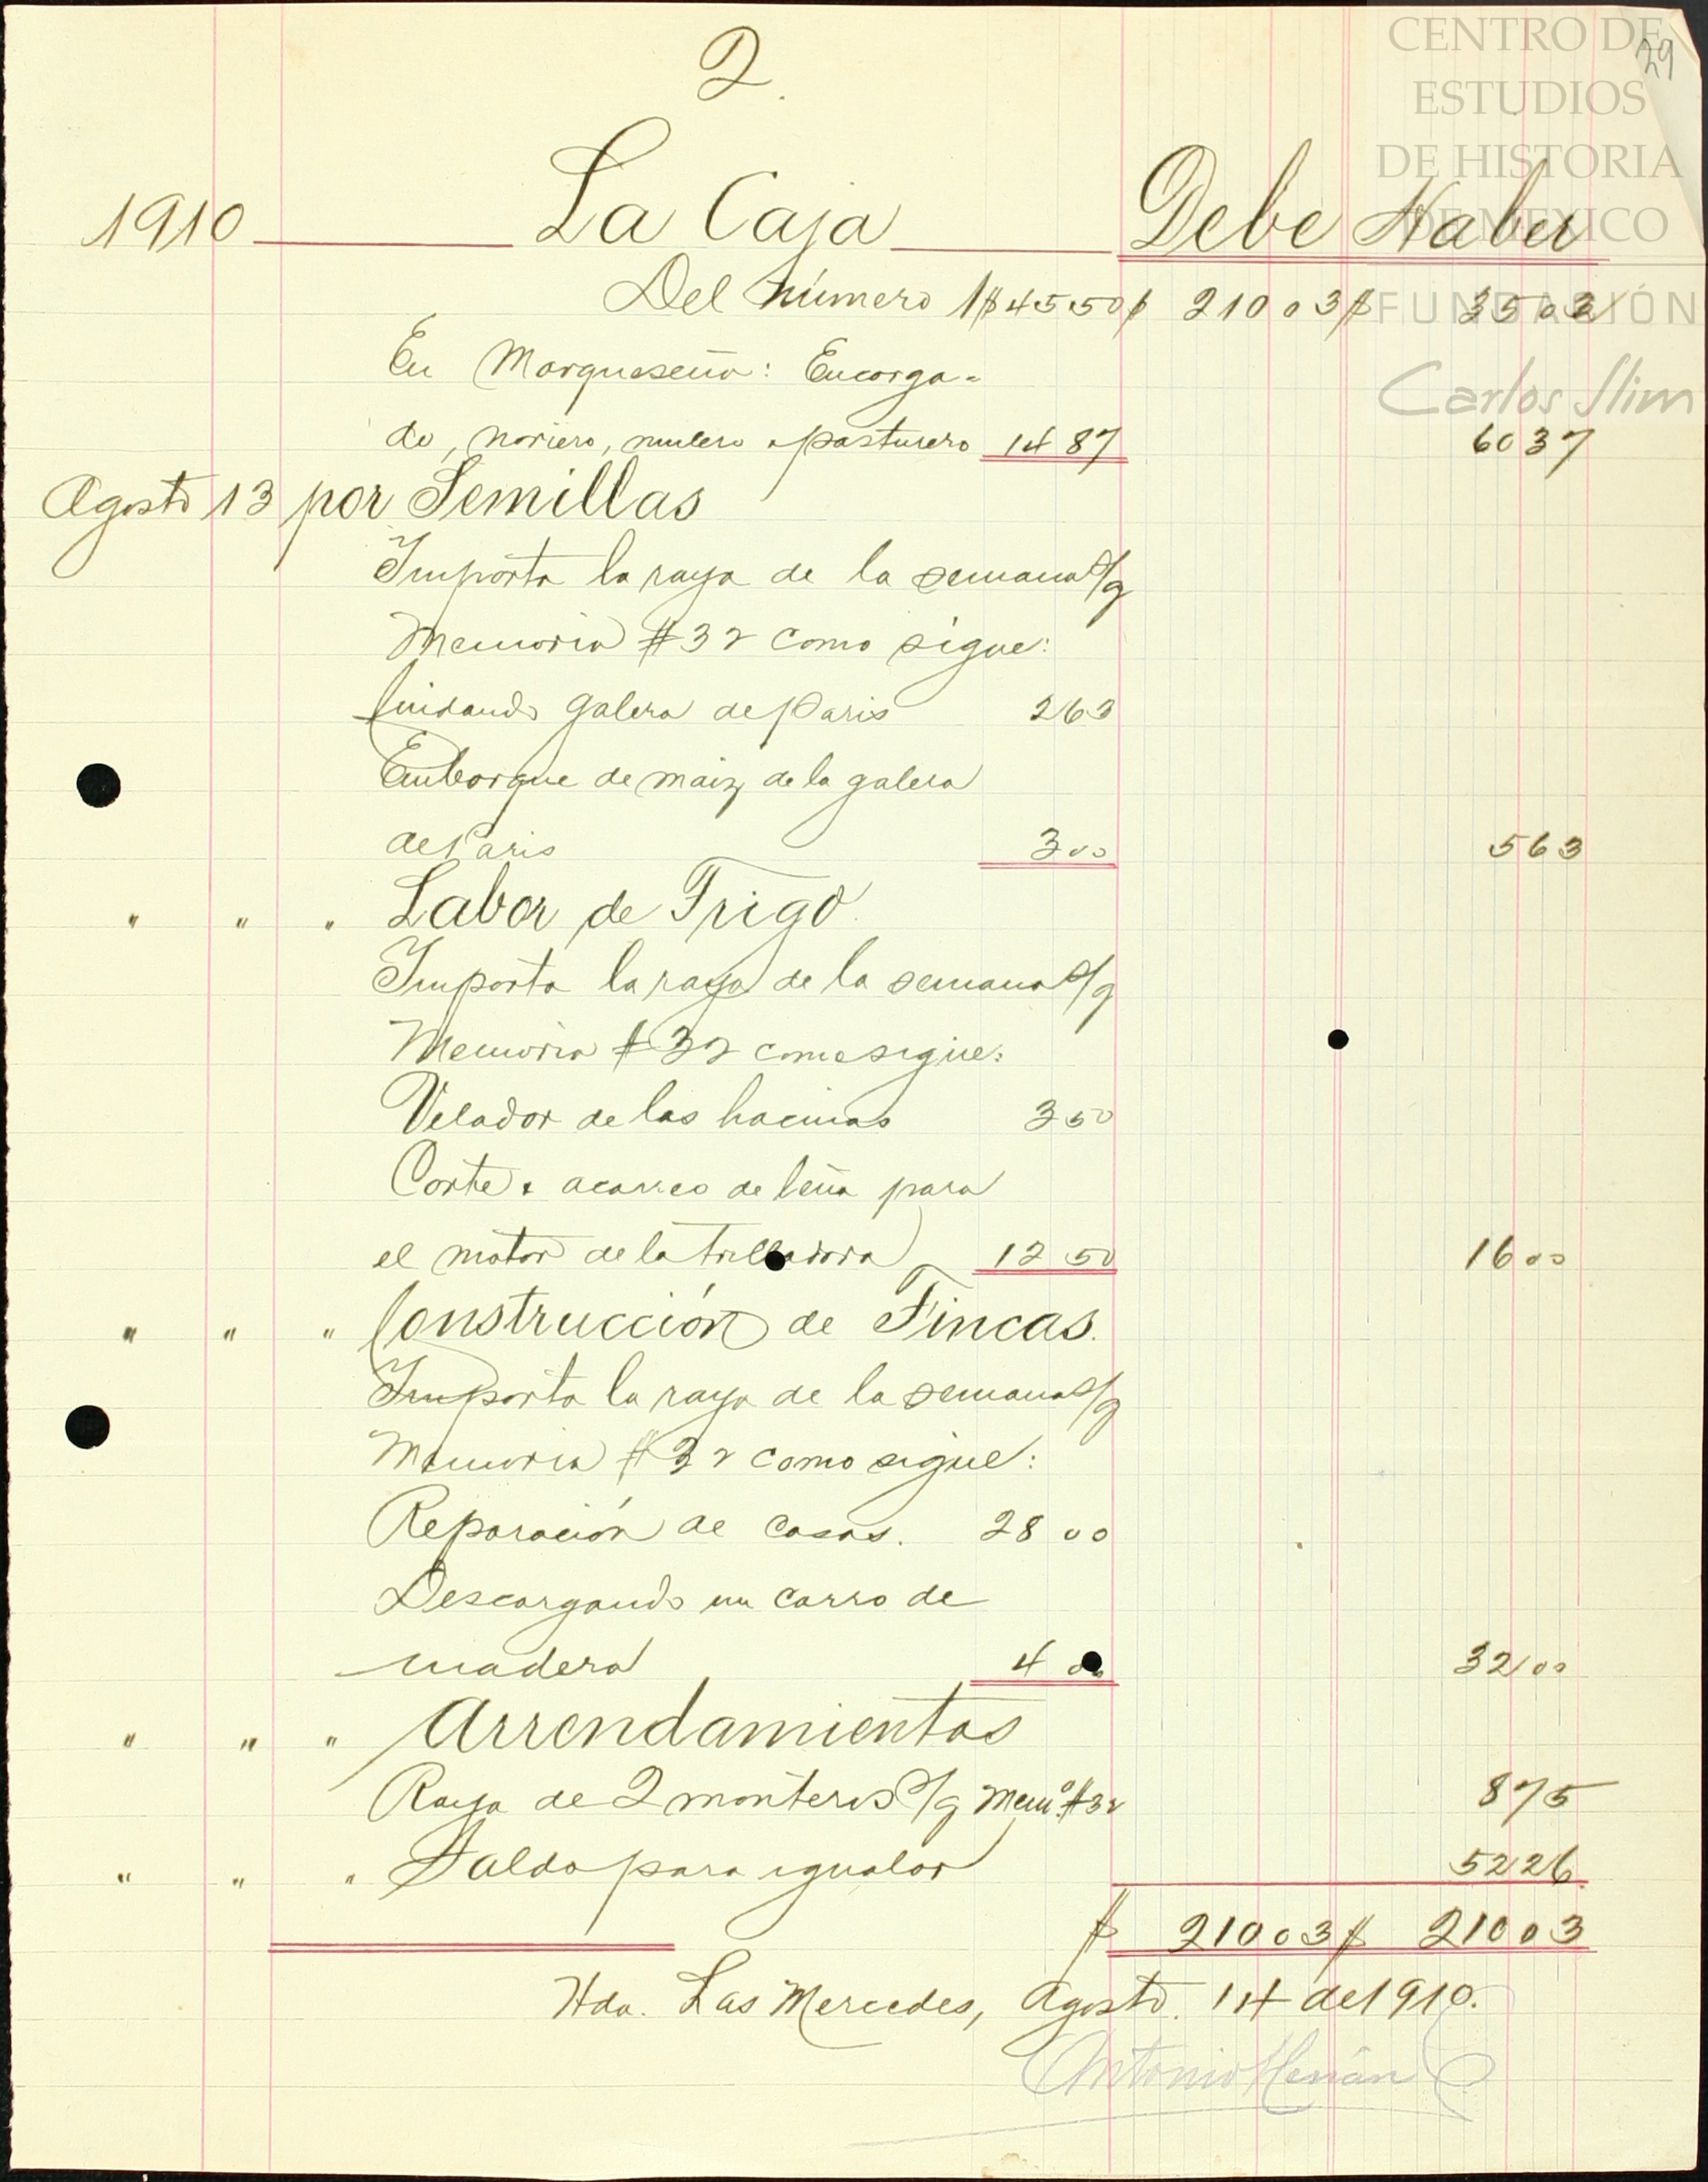 CENTRO DE
ESTUDIOS
DE HISTORIA
DE MEXICO
FUNDACIÓN
Carlos Slim
29
2.
1910 La Caja Debe Haber
Del número 1 $ 45 50 $ 210 03 $ 35 03
En Marqueseña: Encarga=
do, noriero, mulero & pasturero 14 87 60 37
Agosto 13 por Semillas
Importa la raya de la semana s/g
Memoria #32 como sigue:
Cuidando galera de Paris 2 63
Embarque de maiz de la galera
de Paris 3 00 5 63
" " " Labor de Trigo.
Importa la raya de la semana s/g
Memoria #32 como sigue:
Velador de las hacinas 3 50
Corte & acarreo de leña para
el motor de la trilladora 12 50 16 00
" " " Construcción de Fincas.
Importa la raya de la semana s/g
Memoria #32 como sigue:
Reparación de casas. 28 00
Descargando un carro de
madera 4 00 32 00
" " " Arrendamientos
Raya de 2 monteros s/g Mema. #32 8 75
" " " Saldo para igualar 52 26
$ 210 03 $ 210 03
Hda. Las Mercedes, Agosto. 14 de 1910.
Antonio